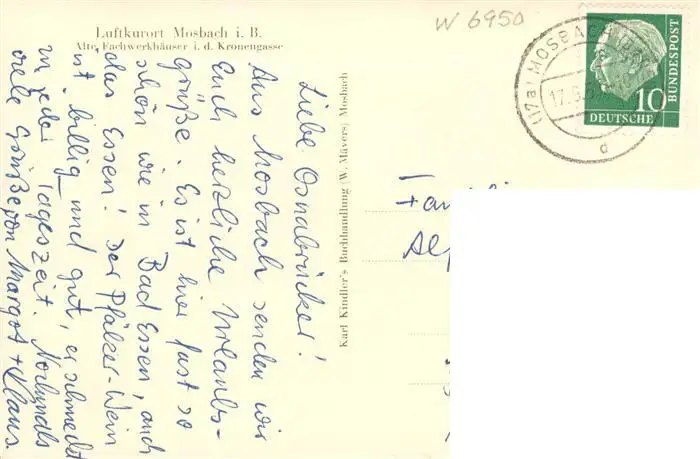 W 6950
Luftkurort Mosbach i. B.
Alte Fachwerkhäuser i. d. Kronengasse
Liebe Osnabrücker!
Aus Mosbach senden wir
Euch herzliche Urlaubs-
grüße. Es ist hier fast so
schön wie in Bad Essen, auch
das Essen! Der Pfälzer-Wein
ist billig und gut, er schmeckt
zu jeder Tageszeit. Nochmals
viele Grüße von Margot + Klaus.
Karl Kindler's Buchhandlung (W. Mävers) Mosbach
(17a) MOSBACH
17.
d
10
DEUTSCHE
BUNDESPOST
Fam